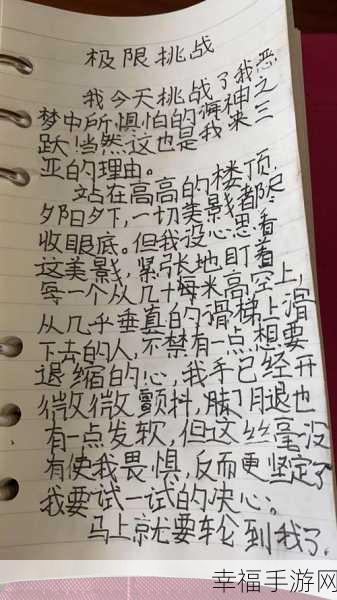 极限挑战
我今天挑战了我恶
梦中所惧怕的海神之
跃,当然这也是我来三
亚的理由。
站在高高的楼顶,
夕阳夕下,一切美景都尽
收眼底。但我没心思看
这美景,紧张地盯着
每一个从几十每米高空上,
从几乎垂直的滑梯上滑
下去的人,不禁有一点想要
退缩的心,我手已经开
微微微颤抖,腿也
有一点发软,但这丝毫没
有使我畏惧,反而更坚定了
我要试一试的决心。
马上就要轮到我了.
幸福手游网